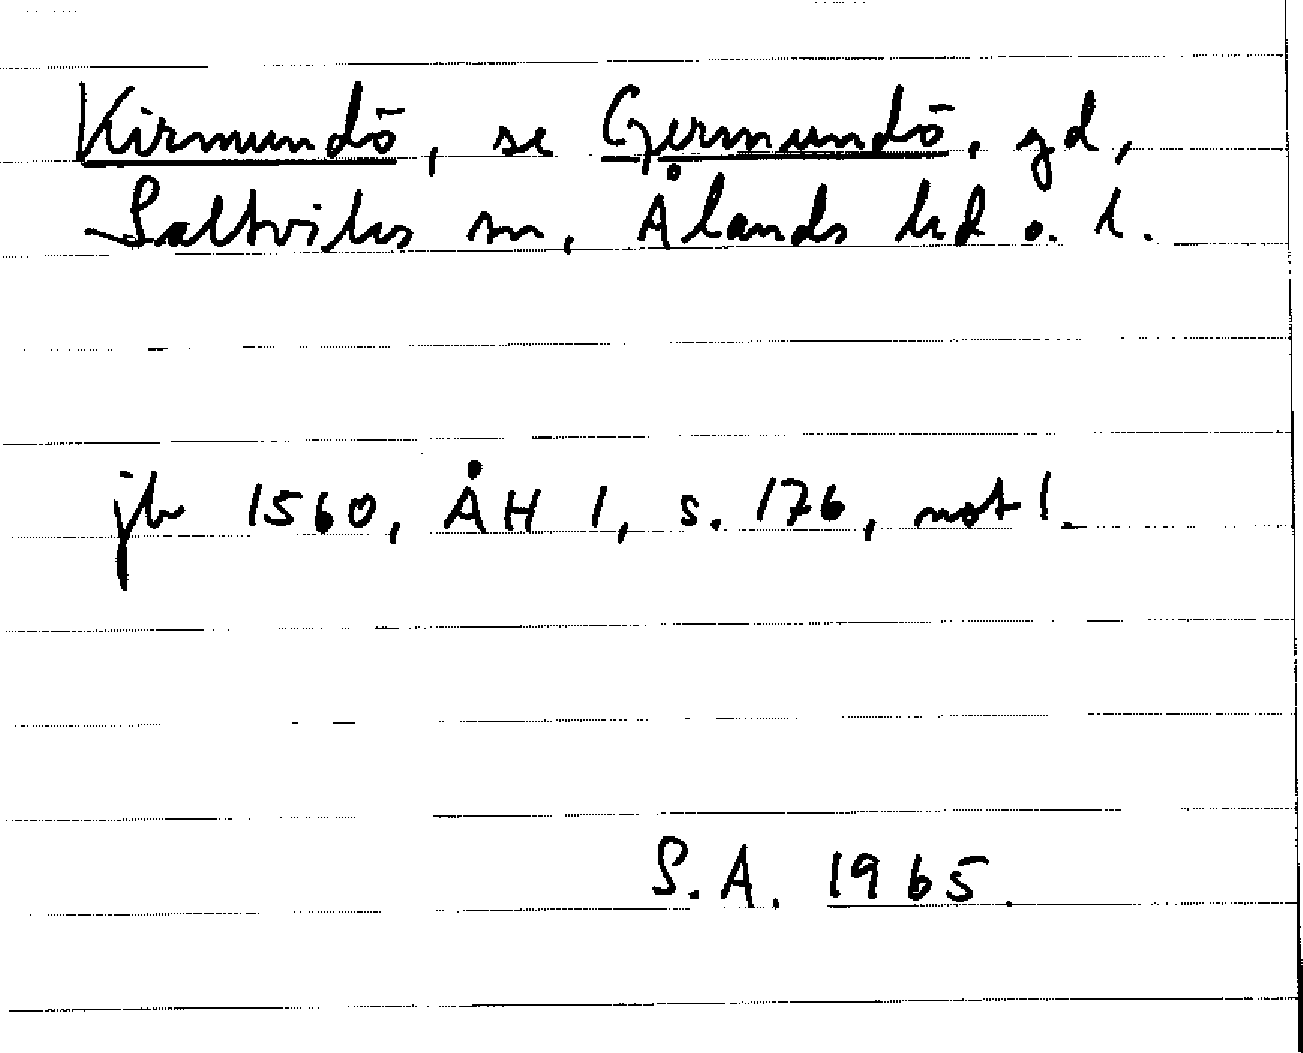 Kirmundö, se Germundö, gd,
Saltviks sn, Ålands hd o. l.
jb 1560, ÅH 1, s. 176, not 1.
S.A. 1965.